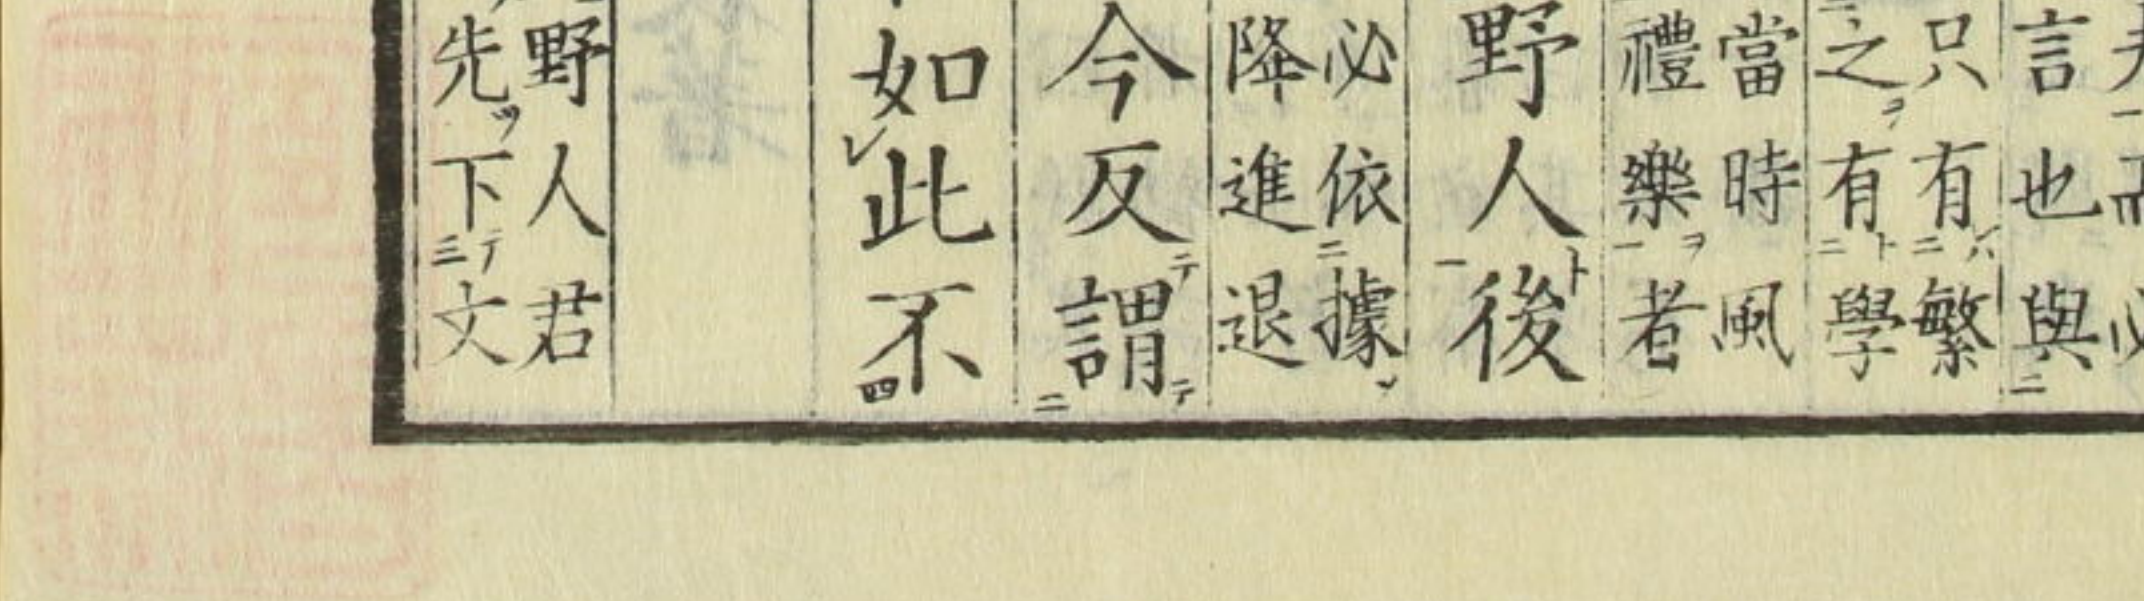 言也與
只有繁
之有學
當時風
禮樂者
野人後
必依據
降進退
今反謂
如此不
野人君
先下文